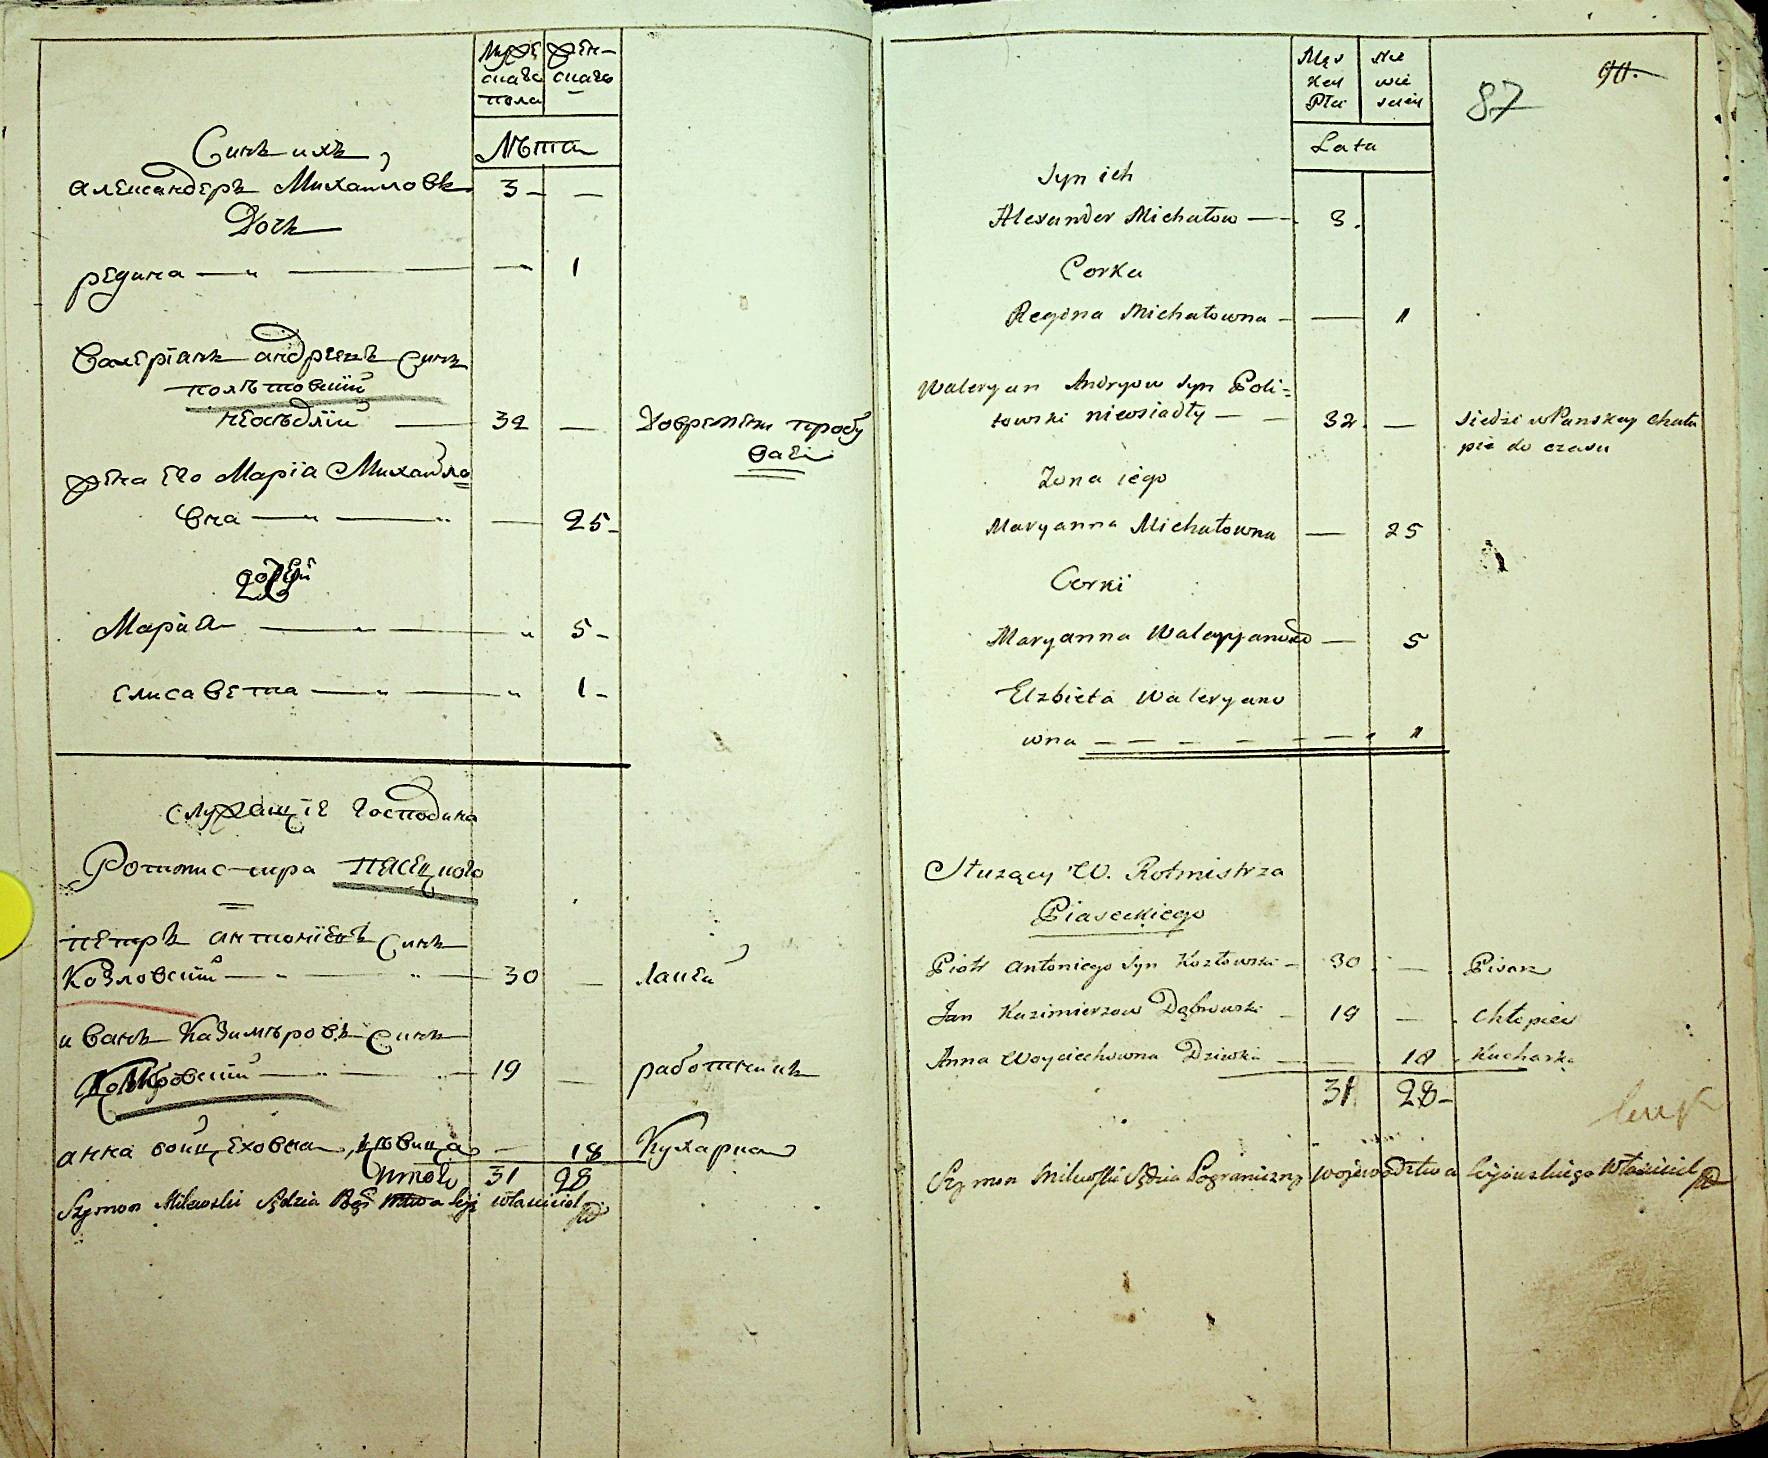 Мужескаго пола
Женскаго
Лѣта
Синъ ихъ,
александеръ Михайловъ 3 — —
Дочь
регина — " — — 1
Валеріанъ андріевъ Синъ
полѣтовскій
неосѣдлій — 32 —
Довремѣни пробу
ваеі
жена его Маріа Михайло
вна — " — " — 25 -
дочери
Маріа — " — " 5 -
елисавета — " — " 1 -
служащіе господина
Ротмистра пясецкого
петръ антоніевъ Синъ
Козловскій — " — " — 30 — лакей
иванъ Казимѣровъ Синъ
19 — работникъ
анна войцеховна дѣвица — 18 Кухарка
Итого 31 28
Szymon Milewski Sędzia właściciel
Męs
key
Płci
Nie
wie
sciey
Lata
87
90.
Syn ich
Alexander Michałow — 3.
Corka
Regina Michałowna — — 1
Waleryan Andryow syn Poli=
towski nieosiadły — — 32. —
siedzi w Panskey Chału
pie do czasu
Zona iego
Maryanna Michałowna — 25
Corki
Maryanna Waleryanowna — 5
Elzbieta Waleryano
wna — — — — — — 1
Służący W. Rotmistrza
Piaseckiego
Piotr Antoniego syn Kozłowski — 30 — Pisarz
Jan Kazimierzow Dąbrowski — 19 — Chłopiec
Anna Woyciechowna Dziewka — — 18 Kucharka
31 28 -
Szymon Milewski Sędzia Pograniczny Wojewodztwa Kijowskiego Właściciel